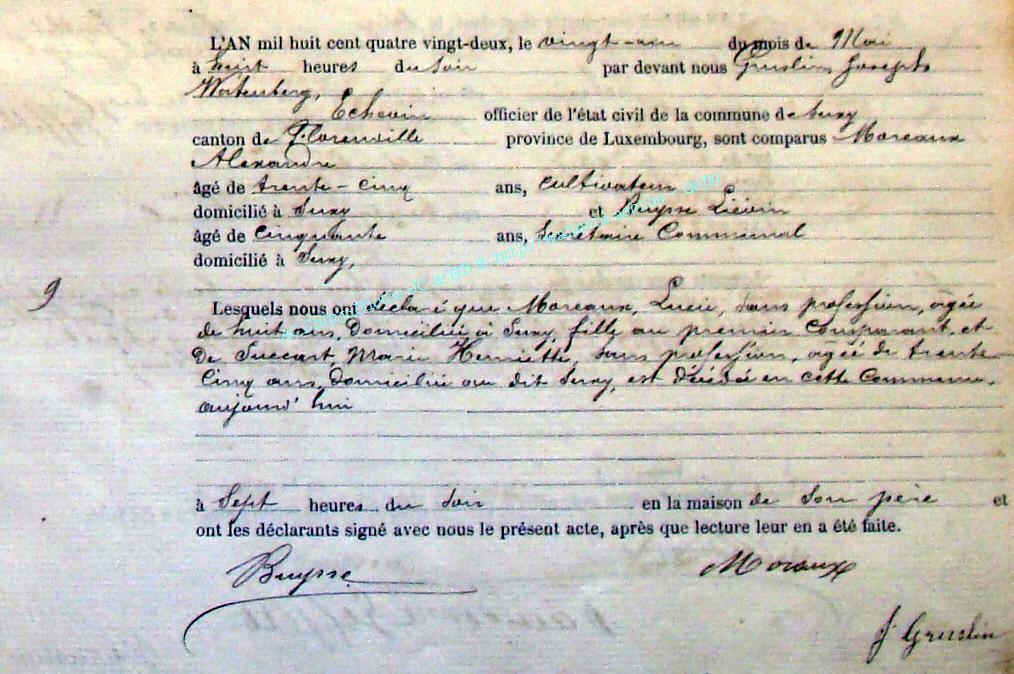 L'AN mil huit cent quatre vingt-deux, le vingt-un du mois de Mai
à huit heures du soir par devant nous Gruslin Joseph
Echevin officier de l'état civil de la commune de Suxy
canton de Florenville province de Luxembourg, sont comparus Moreaux
Alexandre
âgé de trente-cinq ans, cultivateur
domicilié à Suxy et Buysse Liévin
âgé de cinquante ans, Secrétaire Communal
domicilié à Suxy,
9
Lesquels nous ont déclaré que Moreaux, Lucie, sans profession, agée
de huit ans, domiciliée à Suxy, fille au premier Comparant, et
de Succart, Marie Henriette, sans profession, agée de trente
cinq ans, domiciliée au dit Suxy, est décédée en cette Commune,
aujourd'hui
à Sept heures du soir en la maison de son père et
ont les déclarants signé avec nous le présent acte, après que lecture leur en a été faite.
Buysse Moraux
J Gruslin